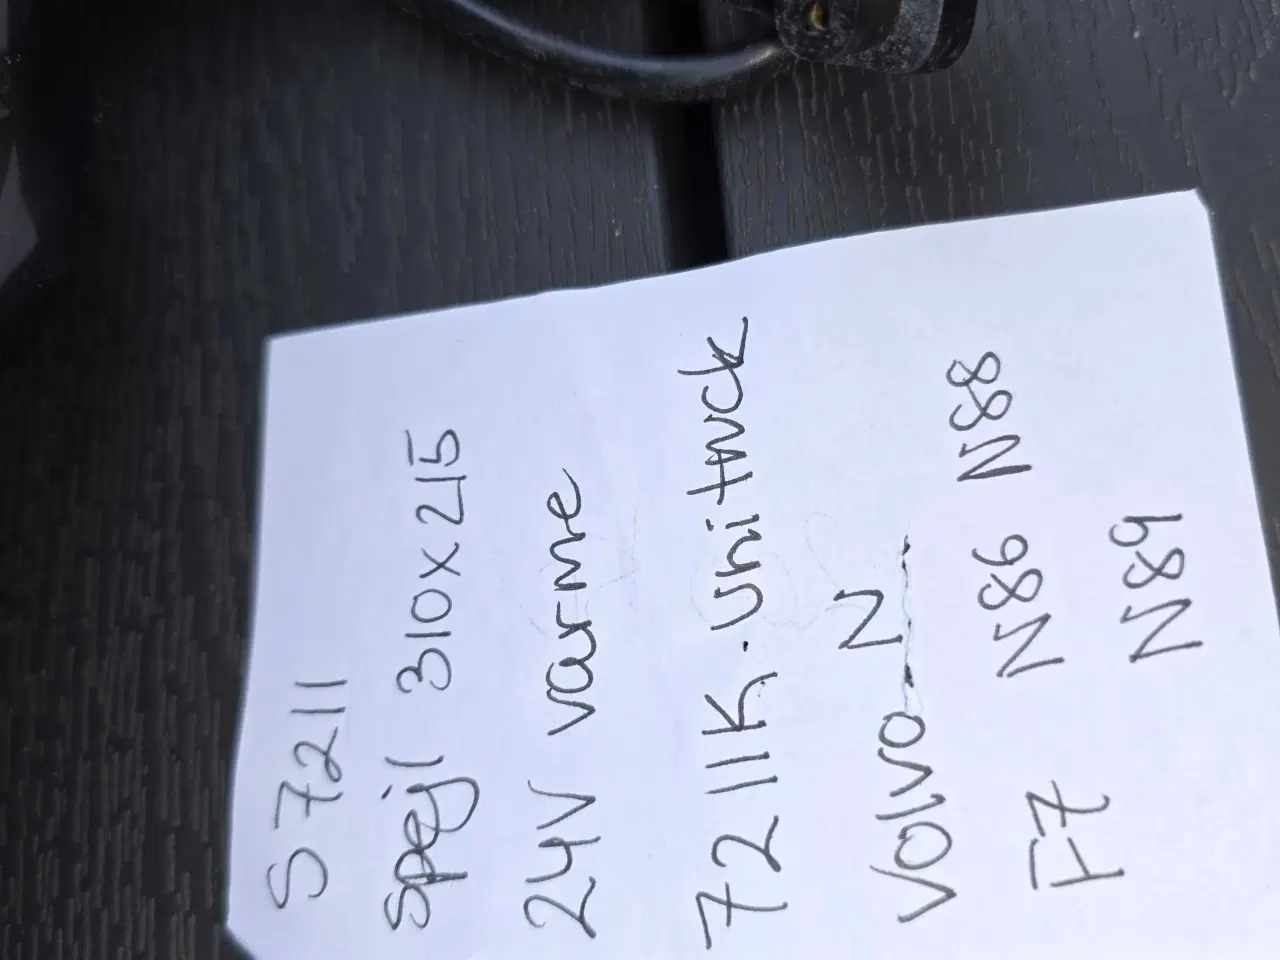 S7211
Spejl 310x215
24V varme
7211K. unitruck
Volvo N
F7 N86 N88
N89